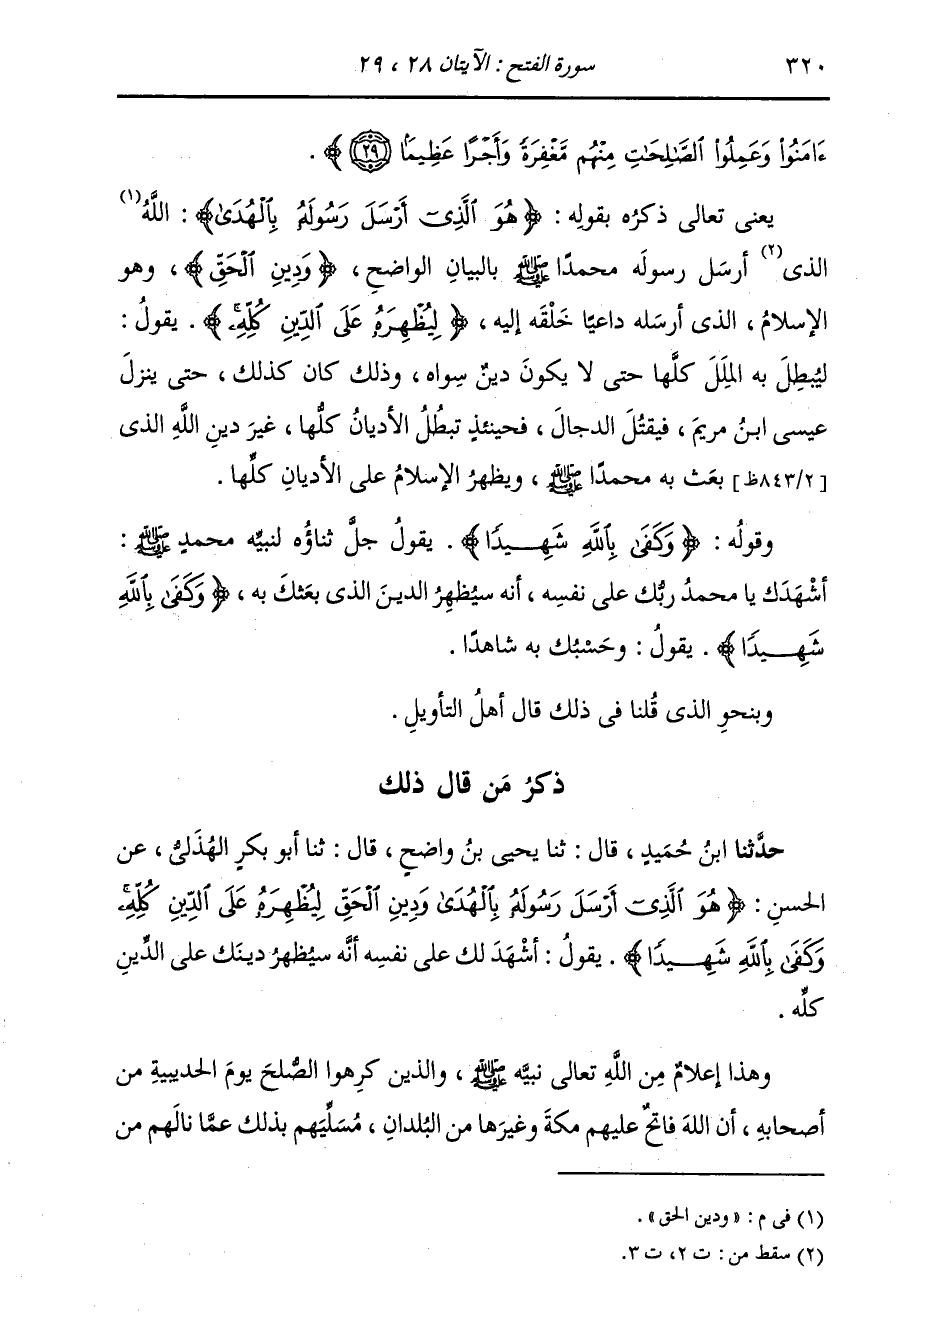 ٣٢٠ سورة الفتح : الآيتان ٢٨ ، ٢٩
ءَامَنُوا۟ وَعَمِلُوا۟ ٱلصَّٰلِحَٰتِ مِنْهُم مَّغْفِرَةً وَأَجْرًا عَظِيمًۢا ۝٢٩ ﴾ .
يعنى تعالى ذكرُه بقولِه : ﴿ هُوَ ٱلَّذِىٓ أَرْسَلَ رَسُولَهُۥ بِٱلْهُدَىٰ﴾ : اللَّهُ(١)
الذى(٢) أرسَل رسولَه محمدًا ﷺ بالبيانِ الواضحِ ، ﴿ وَدِينِ ٱلْحَقِّ ﴾ ، وهو
الإسلامُ ، الذى أرسَله داعيًا خَلْقَه إليه ، ﴿ لِيُظْهِرَهُۥ عَلَى ٱلدِّينِ كُلِّهِۦۚ ﴾ . يقولُ :
ليُبطِلَ به المِلَلَ كلَّها حتى لا يكونَ دينٌ سِواه ، وذلك كان كذلك ، حتى ينزلَ
عيسى ابنُ مريمَ ، فيقتُلَ الدجالَ ، فحينئذٍ تبطُلُ الأديانُ كلُّها ، غيرَ دينِ اللَّهِ الذى
[٨٤٣/٢ظ] بعَث به محمدًا ﷺ ، ويظهرُ الإسلامُ على الأديانِ كلِّها .
وقولُه : ﴿ وَكَفَىٰ بِٱللَّهِ شَهِيدًا ﴾ . يقولُ جلَّ ثناؤُه لنبيِّه محمدٍ ﷺ :
أشْهَدَك يا محمدُ ربُّك على نفسِه ، أنه سيُظهِرُ الدينَ الذى بعَثك به ، ﴿ وَكَفَىٰ بِٱللَّهِ
شَهِيدًا ﴾ . يقولُ : وحَسْبُك به شاهدًا .
وبنحوِ الذى قُلنا فى ذلك قال أهلُ التأويلِ .
ذكرُ مَن قال ذلك
حدَّثنا ابنُ حُمَيدٍ ، قال : ثنا يحيى بنُ واضحٍ ، قال : ثنا أبو بكرٍ الهُذَلىُّ ، عن
الحسنِ : ﴿ هُوَ ٱلَّذِىٓ أَرْسَلَ رَسُولَهُۥ بِٱلْهُدَىٰ وَدِينِ ٱلْحَقِّ لِيُظْهِرَهُۥ عَلَى ٱلدِّينِ كُلِّهِۦۚ
وَكَفَىٰ بِٱللَّهِ شَهِيدًا ﴾ . يقولُ : أشْهَدَ لك على نفسِه أنَّه سيُظهرُ دينَك على الدِّينِ
كلِّه .
وهذا إعلامٌ مِن اللَّهِ تعالى نبيَّه ﷺ ، والذين كرِهوا الصُّلحَ يومَ الحديبيةِ من
أصحابِهِ ، أن اللهَ فاتحٌ عليهم مكةَ وغيرَها من البُلدانِ ، مُسَلِّيَهم بذلك عمَّا نالَهم من
(١) فى م : « ودين الحق » .
(٢) سقط من : ت ٢ ، ت ٣ .